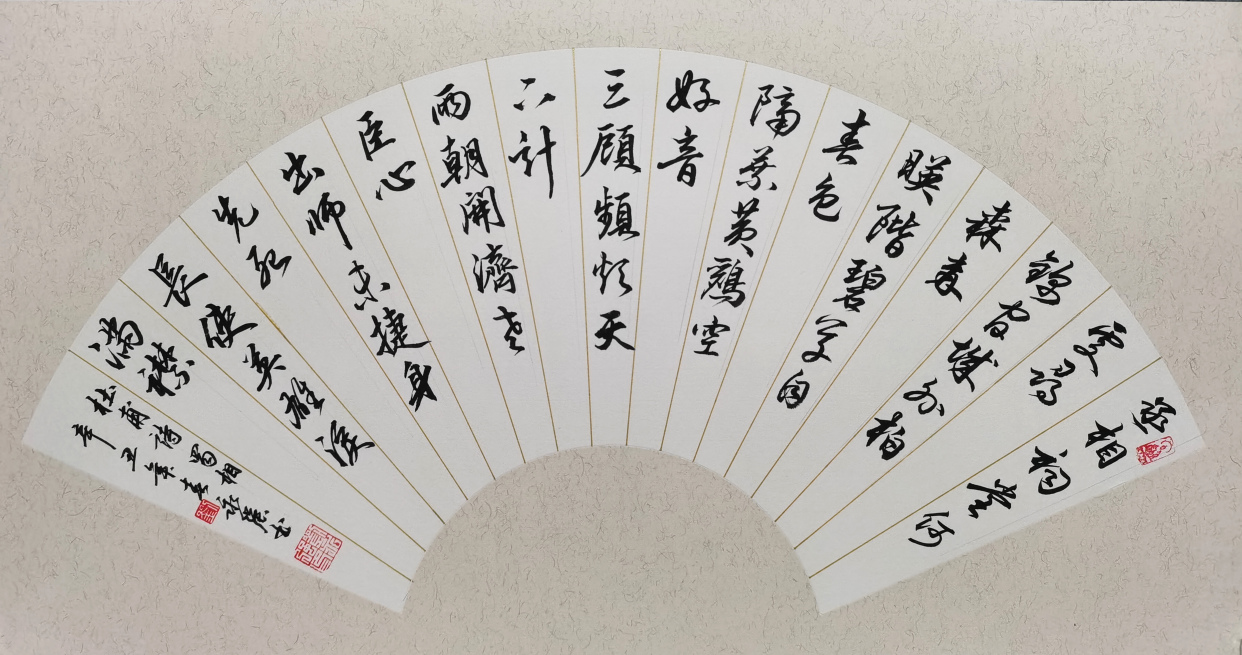 丞相祠堂何
處尋
錦官城外柏
森森
暎階碧草自
春色
隔葉黃鸝空
好音
三顧頻煩天
下計
兩朝開濟老
臣心
出師未捷身
先死
長使英雄淚
滿襟
杜甫詩蜀相
辛丑年春
書